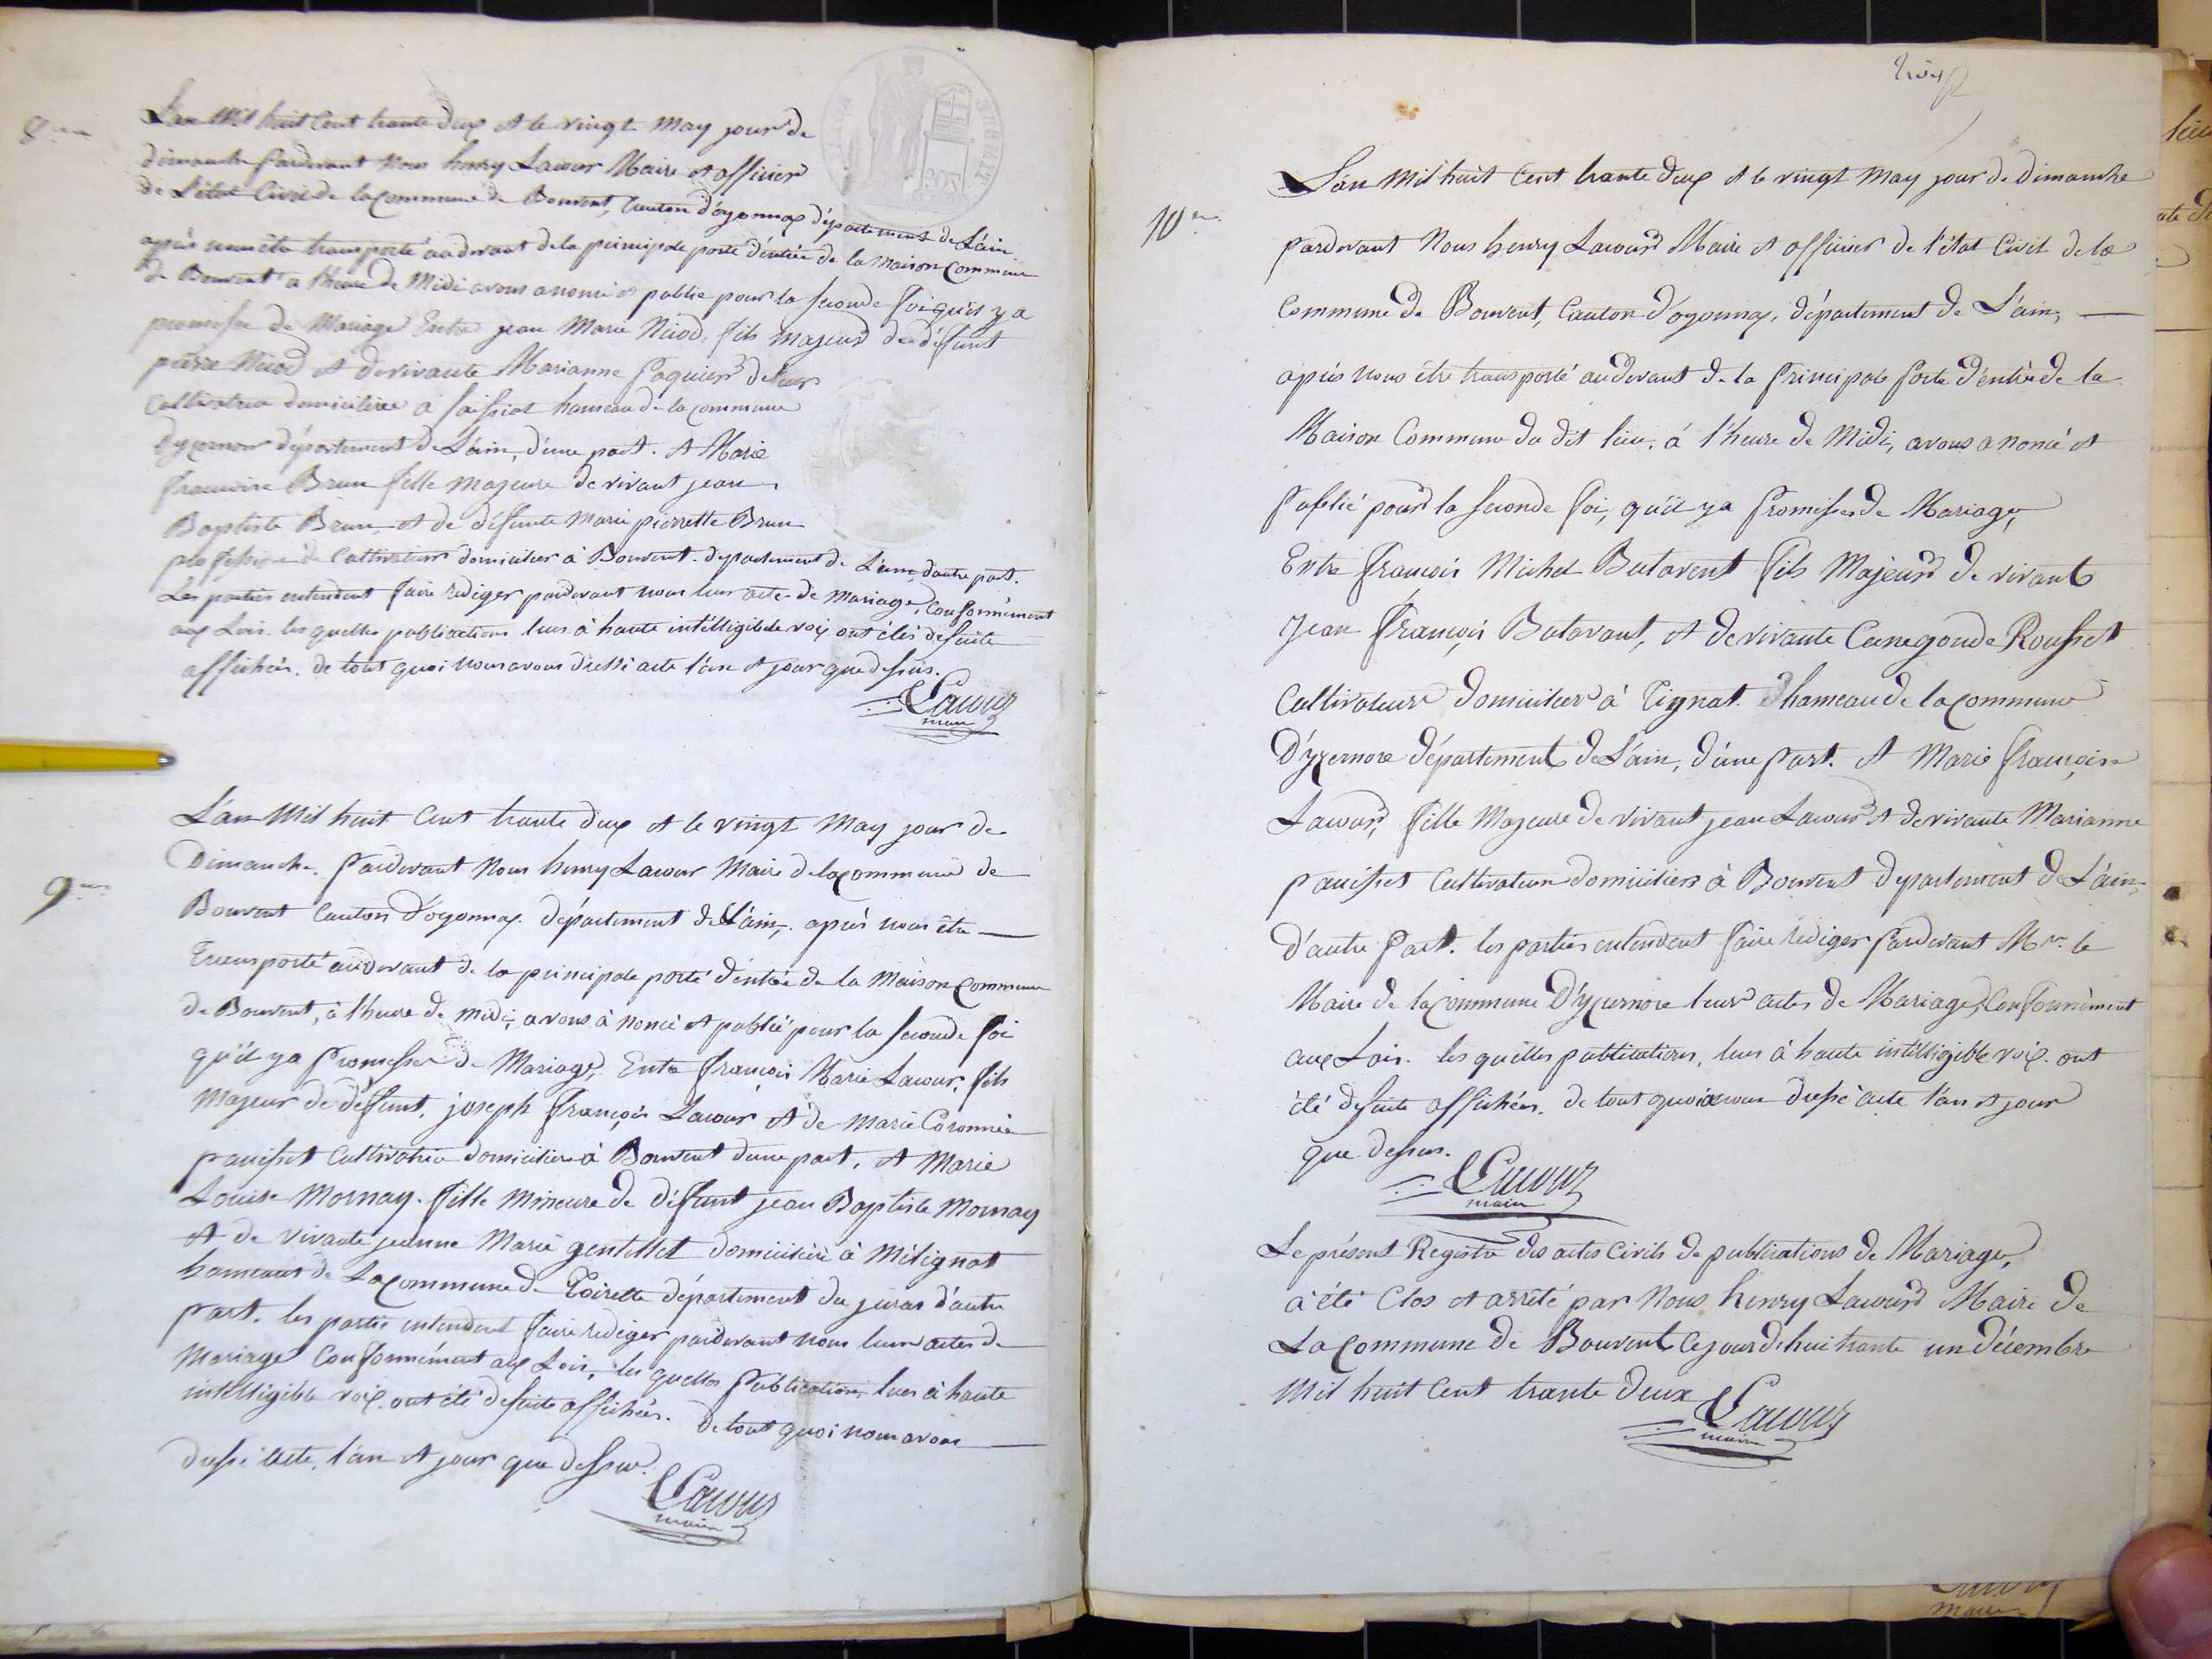 8me
L'an Mil huit Cent trante deux et le vingt May jour de
dimanche pardevant Nous henry Lacour Maire et officier
de L'état Civil de la Commune de Bouvent, Canton d'oyonnax département de L'ain
après nous être transporté audevant de la principale porte d'entrée de la Maison Commune
de Bouvent a l'heure de Midi avons anoncé et publié pour la seconde foi qu'il y a
promesse de Mariage Entre jean Marie Nicod, fils majeur de défunt
pierre Nicod et de vivante Marianne
Cultivateur domiciliée à hameau de la commune
Dyzernore département de L'ain, d'une part. et Marie
francoise Brun fille majeure de vivant jean
Baptiste Brun, et de défunte Marie pierrette Brun
profession de Cultivateurs domicilier à Bouvent. département de L'ain d'autre part.
Les parties entendent faire rediger pardevant nous leur acte de Mariage, Conformément
aux Lois. les quelles publications lues à haute intélligible voix ont étés desuite
affichés. de tout quoi nous avons dressé acte l'an et jour que dessus.
Lacour
maire
9me
L'an Mil huit Cent trante deux et le vingt May jour de
Dimanche. Pardevant Nous henry Lacour Maire de la commune de
Bouvent Canton D'oyonnax. département de L'ain, après nous être
Transporté audevant de la principale porte d'entrée de la Maison Commune
de Bouvent, à l'heure de midi, avons à noncé et publié pour la seconde foi
qu'il y a Promesse de Mariage, Entre françois Marie Lacour, fils
Majeur de défunt, joseph françois Lacour et de Marie
panisset Cultivatrice domiciliere à Bouvent d'une part, et Marie
Louise Mornay. fille Mineure de défunt jean Baptiste Mornay
et de vivante jeanne Marie gentellet domiciliéé à Mélignat
hameaut de La commune de Toirette département du juras d'autre
part. les partie entendent faire rediger pardevant nous leurs actes de
Mariage Conformément aux Lois, les quelles Publications, lues à haute
intélligible voix. ont été desuite affichées. de tout quoi nous avons
dressé acte, l'an et jour que dessus.
Lacour
maire
10me
L'an Mil huit Cent trante deux et le vingt May jour de Dimanche
pardevant Nous henry Lacour Maire et officier de l'état Civil de la
Commune de Bouvent, Canton d'oyonnax, département de L'ain,
après nous être transporté audevant de la Principale Porte d'entrée de la
Maison Commune du dit lieu. à l'heure de Midi, avons a noncé et
Publié pour la seconde foi, qu'il y a Promesse de Mariage,
Entre françois Michel Butavent fils Majeur de vivant
Jean François Butavant, et de vivante Cunegonde Rousset
Cultivateur domicilier à Tignat hameau de la commune
D'yzernore département de L'ain, d'une Part. et Marie Françoise
Lacour, fille Majeure de vivant jean Lacour et de vivante Marianne
panisset Cultivateur domiciliers à Bouvent département de L'ain,
d'autre Part. les parties entendent faire rediger Pardevant Mr. le
Maire de la commune D'yzernore leur actes de Mariage, Conformément
aux Lois. les quelles publications, lues à haute intélligible voix. ont
été desuite affichées. de tout quoi avons dressé acte l'an et jour
que dessus.
Lacour
maire
Le présent Registre des actes Civils de publications de Mariage,
à été Clos et arrêté par Nous henry Lacour Maire de
La commune de Bouvent, Ce jourd'hui trante un décembre
Mil huit Cent trante deux
Lacour
maire